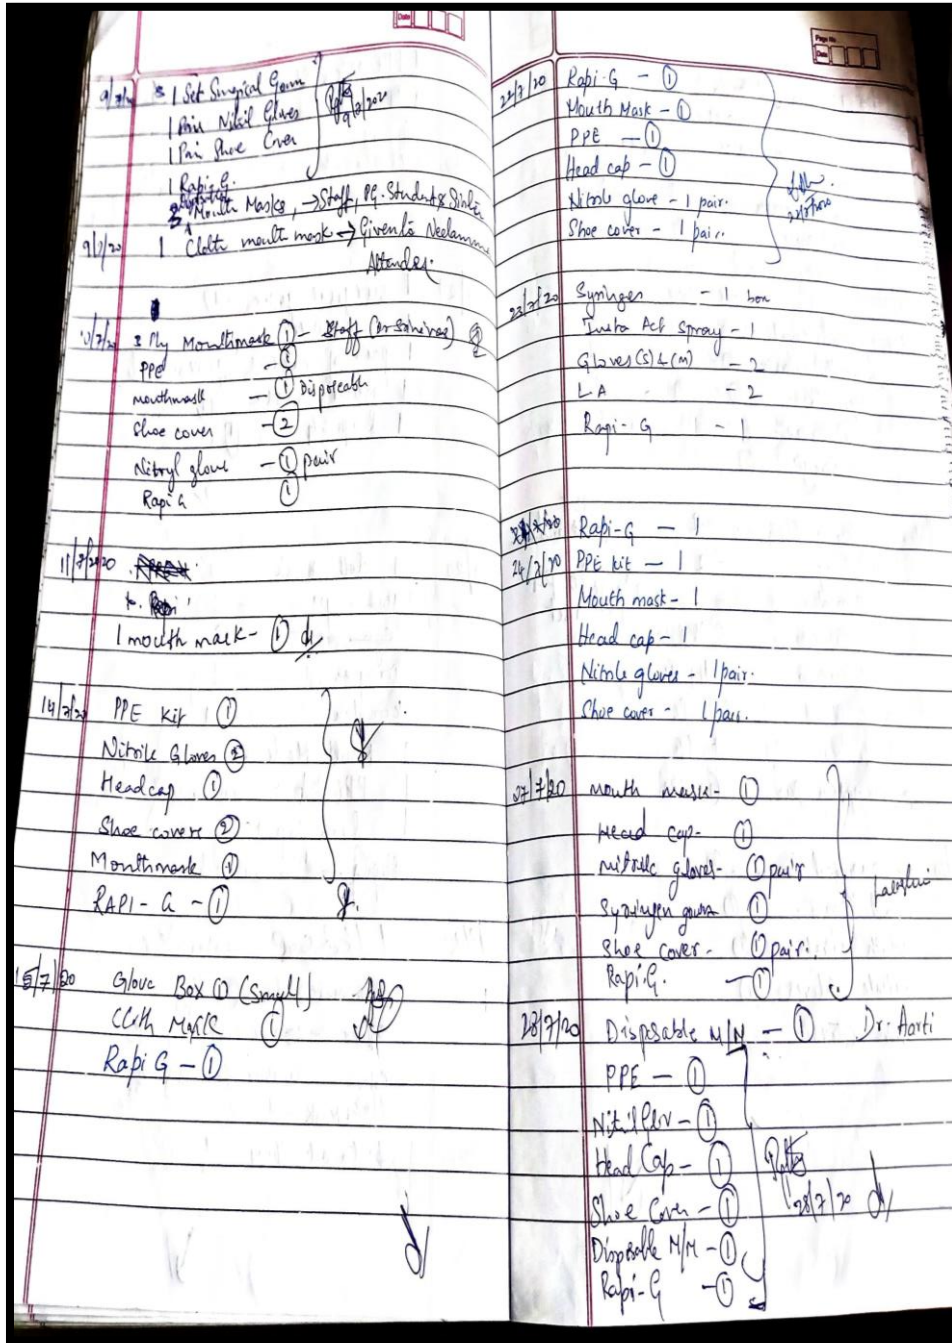 Date
9/7/20 1 Set Surgical Gown
1 Pair Nitril Gloves
1 Pair Shoe Cover
1 Rapi-G.
Mouth Masks, → Staff, PG. Students
9/7/20 1 Cloth mouth mask → Given to Neelamma
Attender.
3 Ply Mouthmask ① - Staff
PPE - ①
mouthmask - ① Disposeable
Shoe cover - ②
Nitryl glove - ① pair
Rapi G ①
11/7/2020
1 mouth mask - ①
14/7/20 PPE Kit ①
Nitrile Gloves ②
Headcap ①
Shoe covers ②
Mouthmask ①
RAPI - G - ①
15/7/20 Glove Box ① (Small)
Cloth Mask ①
Rapi G - ①
Page No.
Date
22/7/20 Rapi-G - ①
Mouth Mask - ①
PPE - ①
Head cap - ①
Nitrile glove - 1 pair.
Shoe cover - 1 pair.
22/7/2020
23/7/20 Syringes - 1 box
Act Spray - 1
Gloves (S) & (M) - 2
L A - 2
Rapi-G - 1
Rapi-G - 1
24/7/20 PPE kit - 1
Mouth mask - 1
Head cap - 1
Nitrile gloves - 1 pair.
Shoe cover - 1 pair.
27/7/20 mouth mask - ①
Head cap - ①
nitrile gloves - ① pair
gown ①
Shoe cover - ① pair.
Rapi.G. - ①
28/7/20 Disposable M/M - ① Dr. Aarti
PPE - ①
Nitril Glov - ①
Head Cap - ①
Shoe Cover - ① 28/7/20
Disposable M/M - ①
Rapi-G - ①